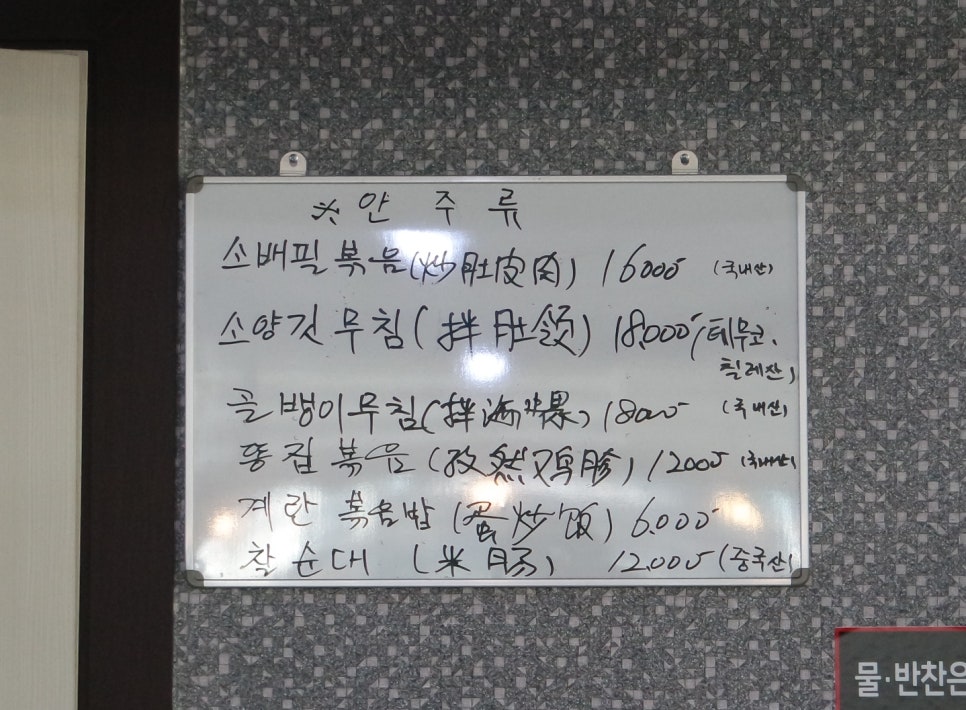 ※ 안 주 류
소배필 볶음 (炒肚皮肉) 16000 (국내산)
소양깃 무침 (拌肚领) 18,000 (데무코.
칠레산)
골뱅이무침 (拌海螺) 18000 (국내산)
똥집 볶음 (孜然鸡胗) 12000 (국내산)
계란 볶음밥 (蛋炒饭) 6.000
찰순대 (米肠) 12.000 (중국산)
물·반찬은